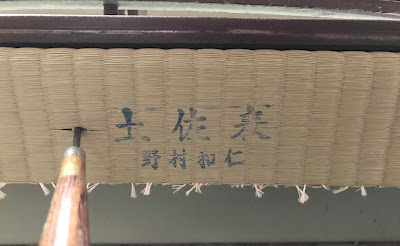 土佐表
野村和仁